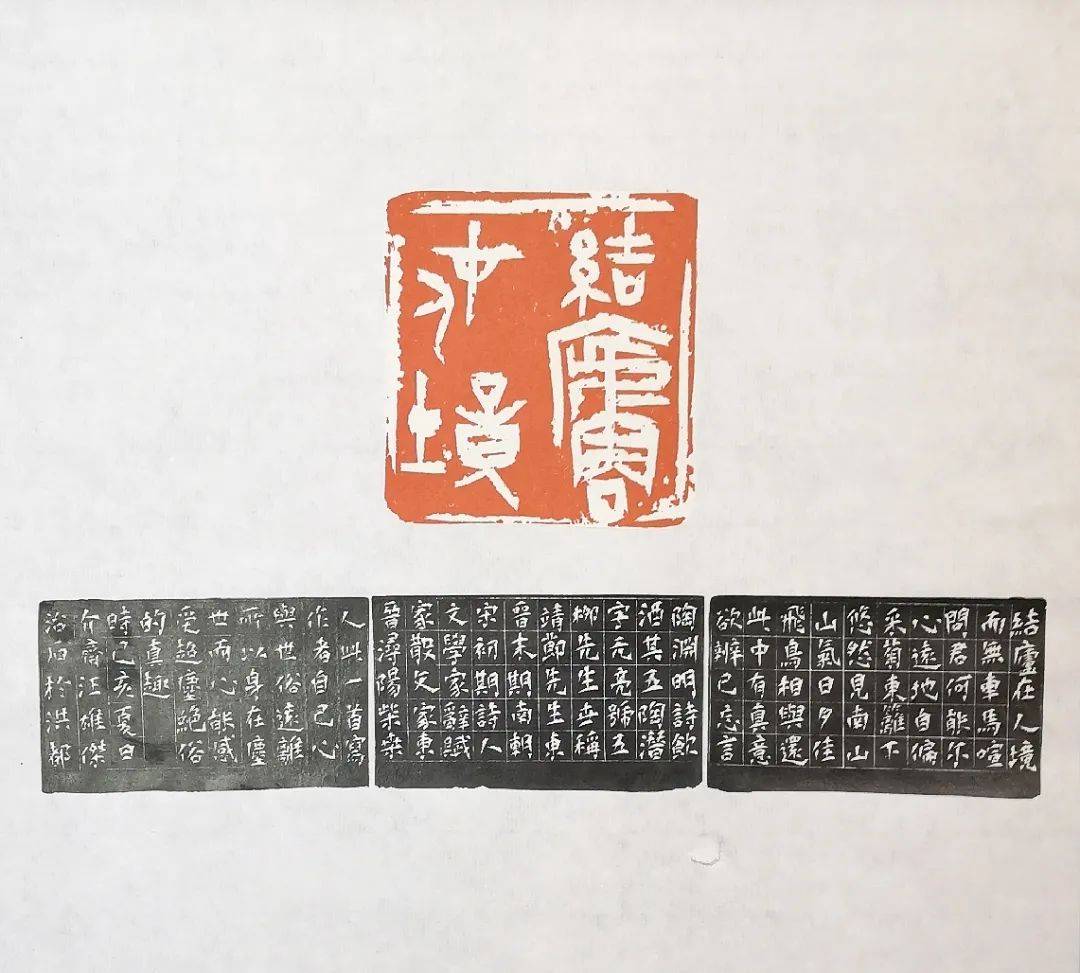 結廬
在人境
結廬在人境
而無車馬喧
問君何能尔
心遠地自偏
采菊東籬下
悠然見南山
山氣日夕佳
飛鳥相與還
此中有真意
欲辨已忘言
陶淵明詩飲
酒其五陶潛
字元亮號五
柳先生世稱
靖節先生東
晉末期南朝
宋初期詩人
文學家辭賦
家散文家東
晉潯陽柴桑
人此一首寫
作者自己心
與世俗遠離
所以身在塵
世而心能感
受超塵絕俗
的真趣
時己亥夏日
介齋汪雄傑
治印於洪都